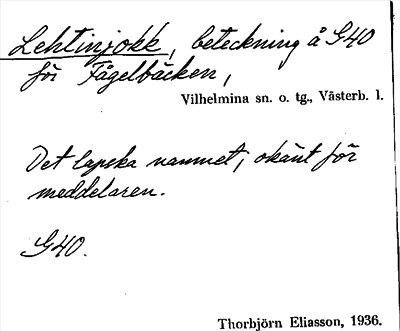 Lehtinjokk, beteckning å G40
för Fågelbäcken,
Vilhelmina sn. o. tg., Västerb. l.
Det lapska namnet, okänt för
meddelaren.
G40.
Thorbjörn Eliasson, 1936.